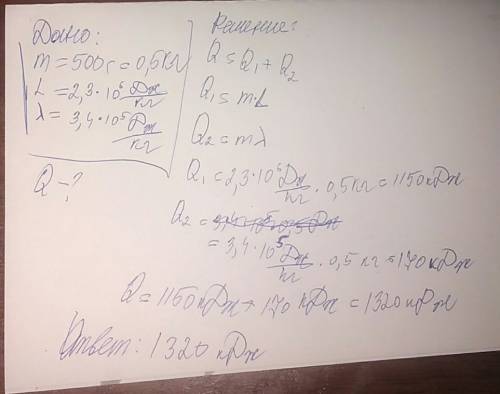 Дано:
m = 500г = 0,5кг
L = 2,3·10⁶ Дж/кг
λ = 3,4·10⁵ Дж/кг
Q - ?
Решение:
Q = Q₁ + Q₂
Q₁ = m·L
Q₂ = mλ
Q₁ = 2,3·10⁶ Дж/кг · 0,5кг = 1150кДж
Q₂ =
= 3,4·10⁵ Дж/кг · 0,5кг = 170кДж
Q = 1150кДж + 170кДж = 1320кДж
Ответ: 1320кДж